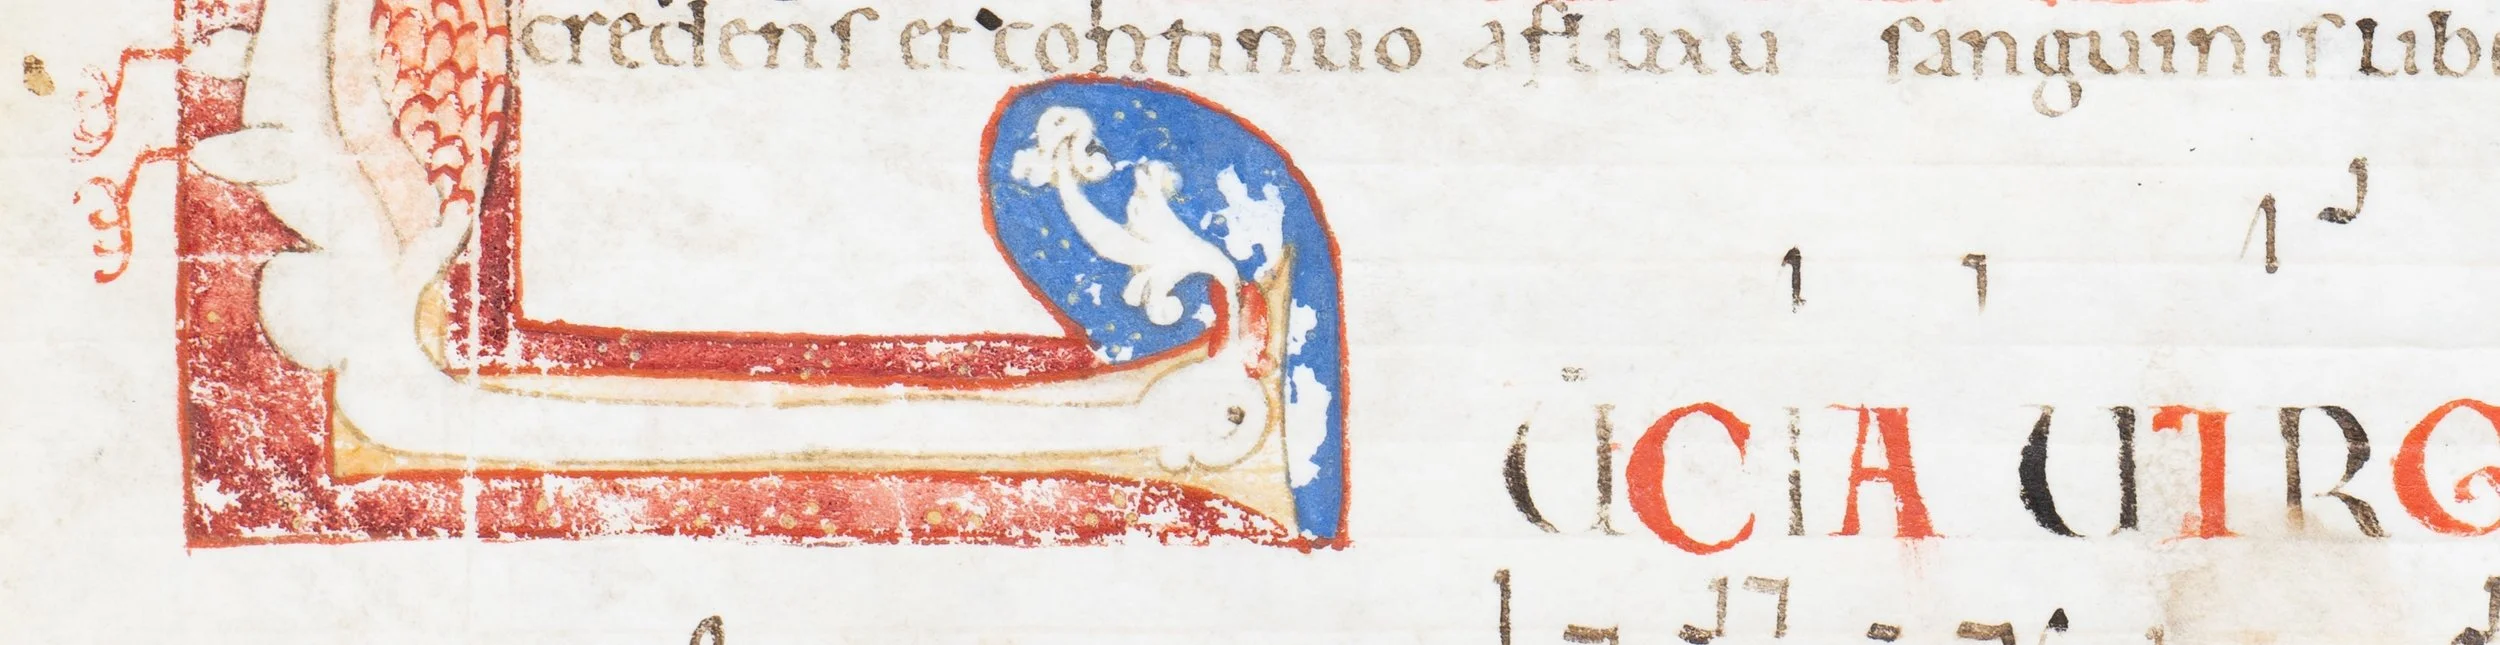 credens et continuo afluxu sanguinis libe
LUCIA UIRG